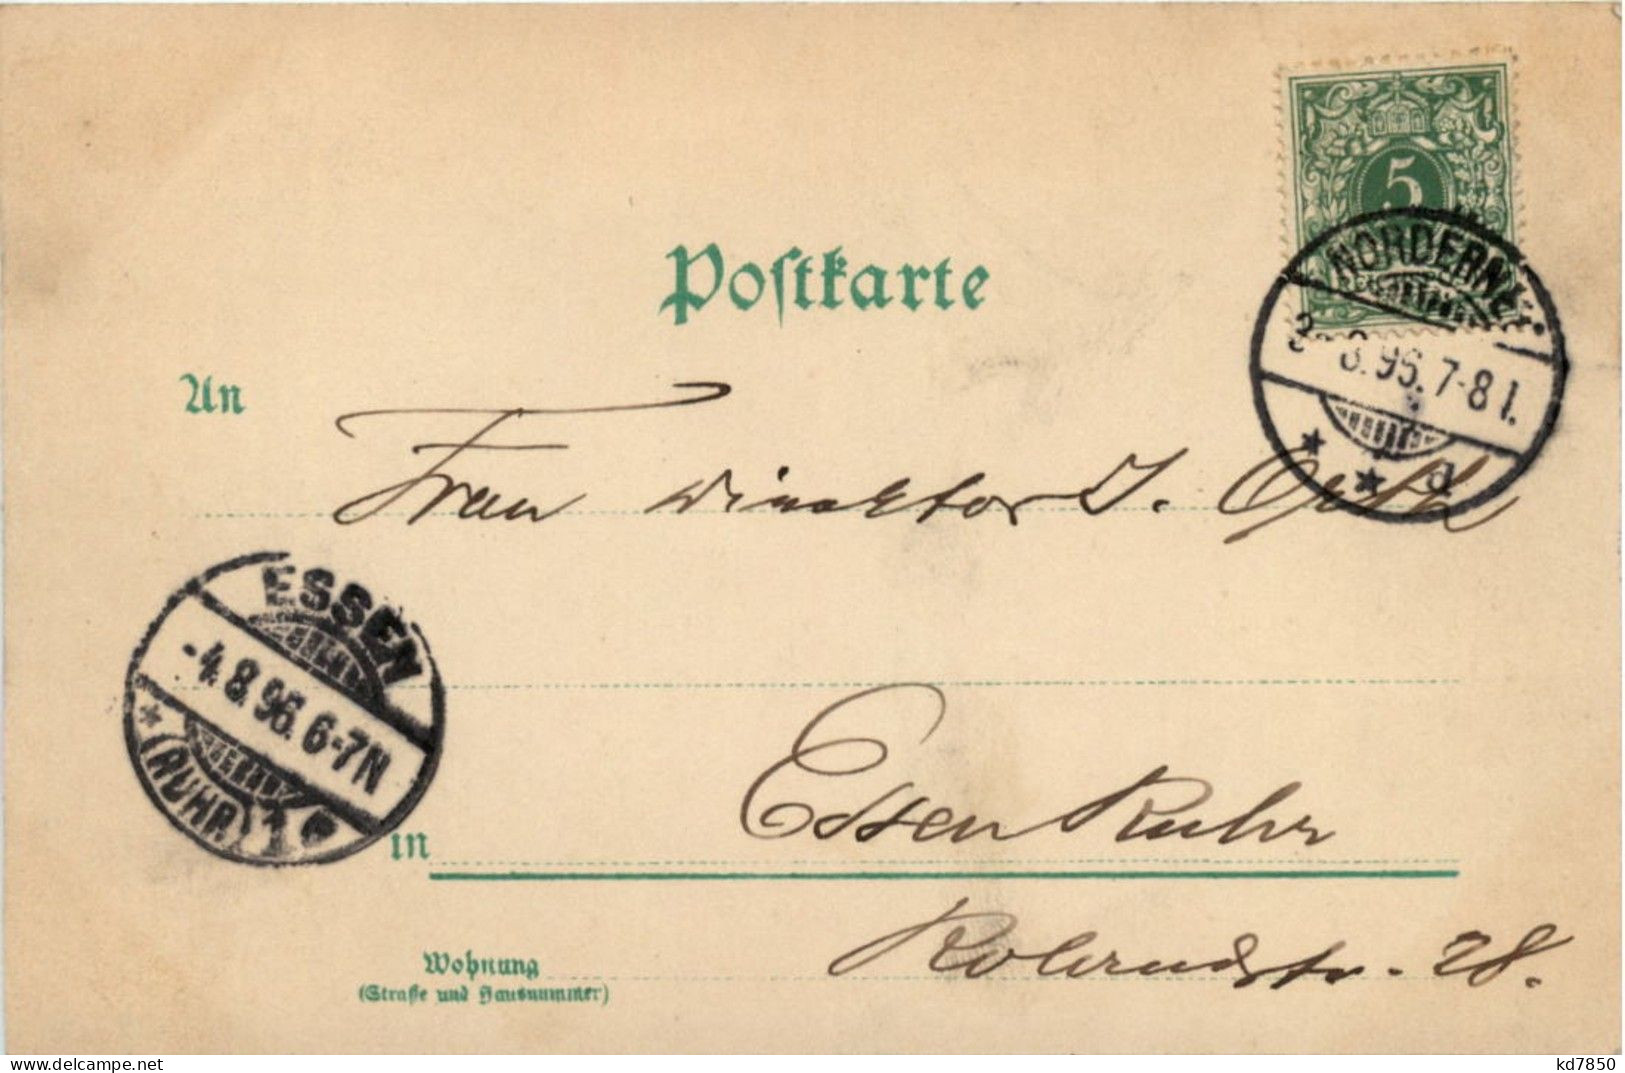 5
Postkarte
NORDERNEY
3. 8.96. 7-8 N.
d
An
Frau Direktor J.
ESSEN
-4.8.96.6-7N
* (RUHR) 1 e
in
Essen Ruhr
28.
Wohnung
(Straße und Hausnummer)
delcampe.net
kd7850